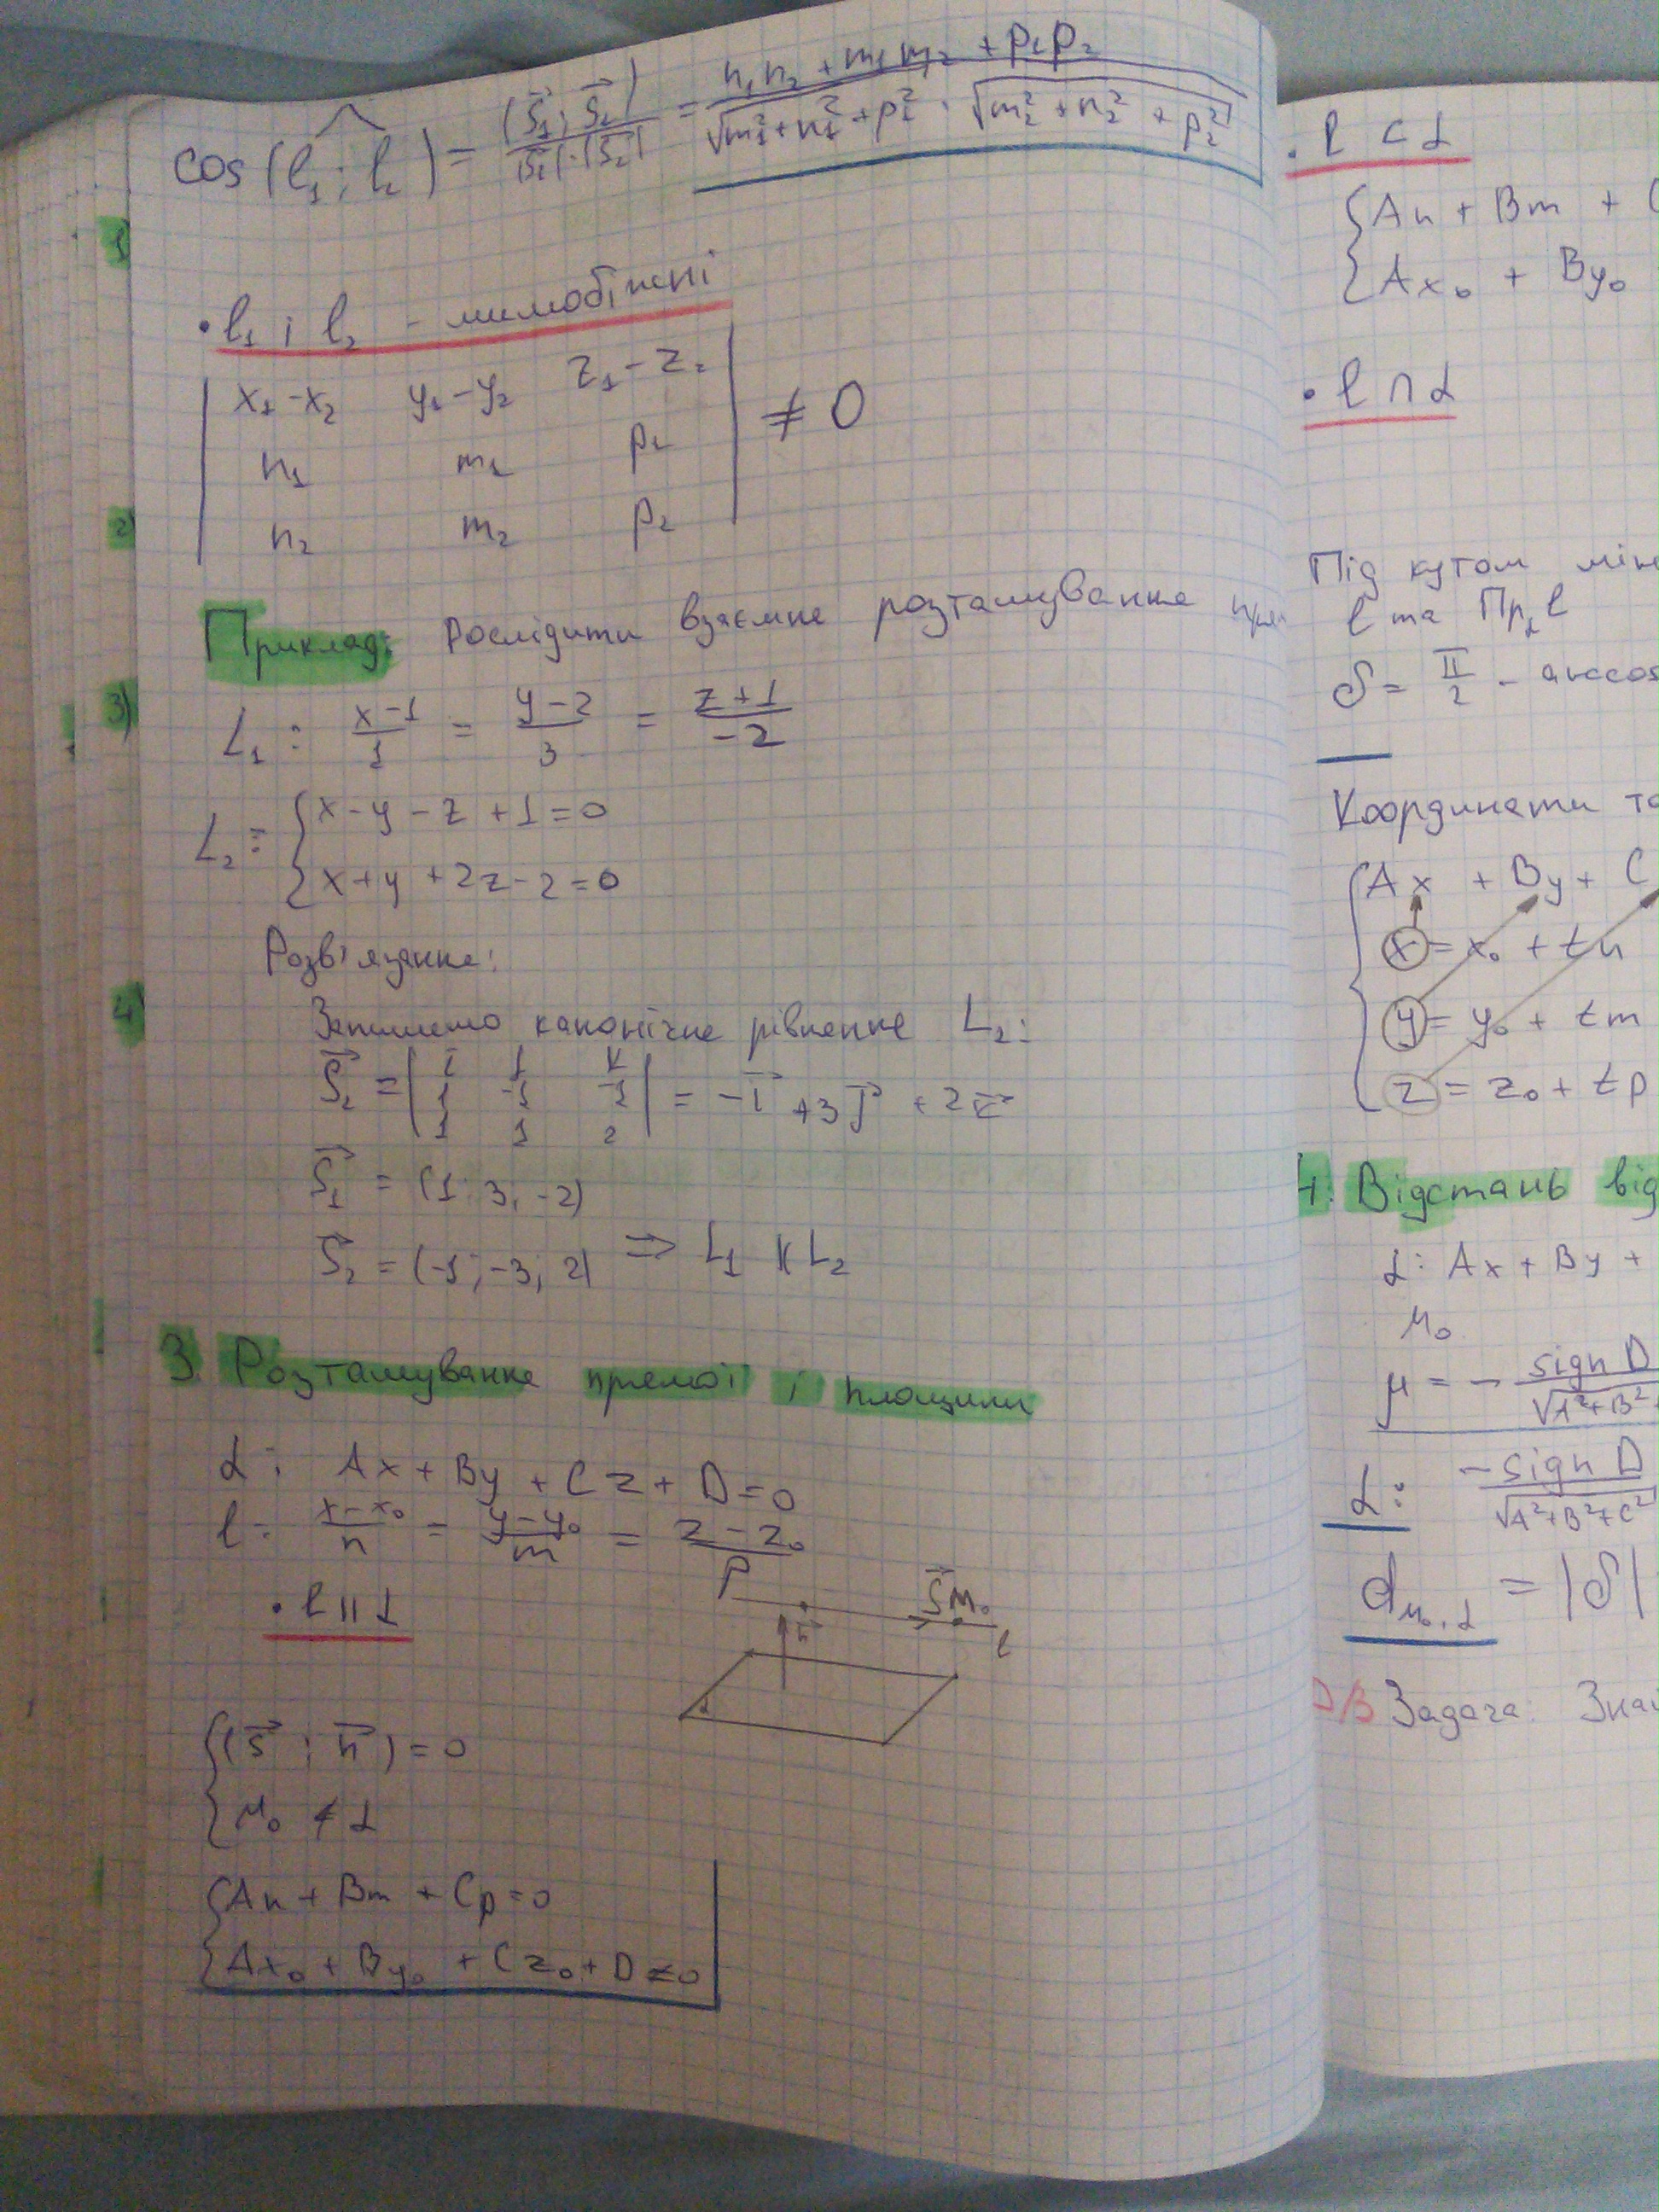 cos(l₁; l₂) = (S⃗₁; S⃗₂) / |S⃗₁|·|S⃗₂| = n₁n₂ + m₁m₂ + p₁p₂ / √m₁² + n₁² + p₁² · √m₂² + n₂² + p₂²
1)
• l₁ і l₂ - мимобіжні
| x₁-x₂ y₁-y₂ z₁-z₂ |
| n₁ m₁ p₁ | ≠ 0
2)
| n₂ m₂ p₂ |
Приклад: Дослідити взаємне розташування
3)
L₁: x-1/1 = y-2/3 = z+1/-2
L₂: { x - y - z + 1 = 0
{ x + y + 2z - 2 = 0
Розв'язання:
4)
Запишемо канонічне рівняння L₂:
S⃗₂ = | i j k |
| 1 -1 -1 | = -i⃗ + 3j⃗ + 2k⃗
| 1 1 2 |
S⃗₁ = (1; 3; -2)
S⃗₂ = (-1; -3; 2) ⇒ L₁ ∦ L₂
3 Розташування прямої і площини
α: Ax + By + Cz + D = 0
l: x-x₀/n = y-y₀/m = z-z₀/p
• l || α
S⃗ M₀
n⃗ l
α
{ (s⃗; n⃗) = 0
{ M₀ ∉ α
{ An + Bm + Cp = 0
{ Ax₀ + By₀ + Cz₀ + D ≠ 0
• l ⊂ α
{ An + Bm +
{ Ax₀ + By₀
• l ∩ α
Під кутом між
l та Пр_α l
δ = π/2 - arccos
Координати
{ Ax + By + C
x = x₀ + tn
y = y₀ + tm
z = z₀ + tp
4. Відстань від
α: Ax + By +
M₀
μ = - sign D / √A²+B²+
α: -sign D / √A²+B²+C²
d_M₀,α = |δ|
Д/З Задача: